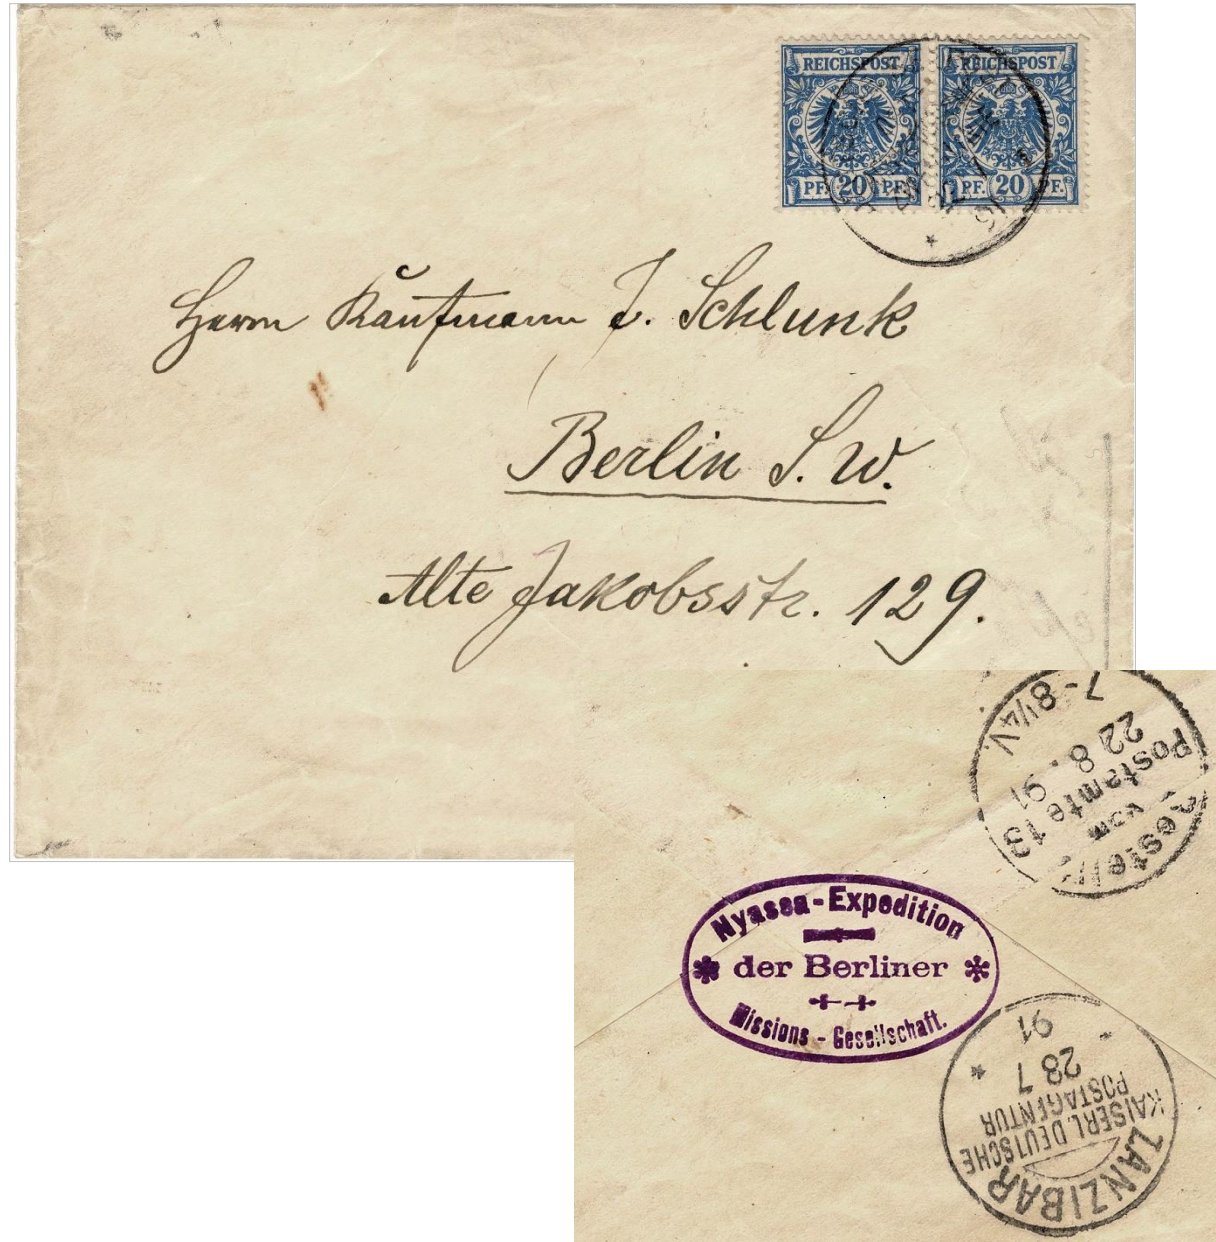 REICHSPOST REICHSPOST
PF. 20 PF. PF. 20 PF.
91
Herrn Kaufmann J. Schlunk
Berlin S. W.
Alte Jakobsstr. 129.
Bestellt
vom
Postamte 13
22 8. 91
7-8¼V.
Nyassa-Expedition
der Berliner
Missions-Gesellschaft.
ZANZIBAR
KAISERL. DEUTSCHE
POSTAGENTUR
28 7
91